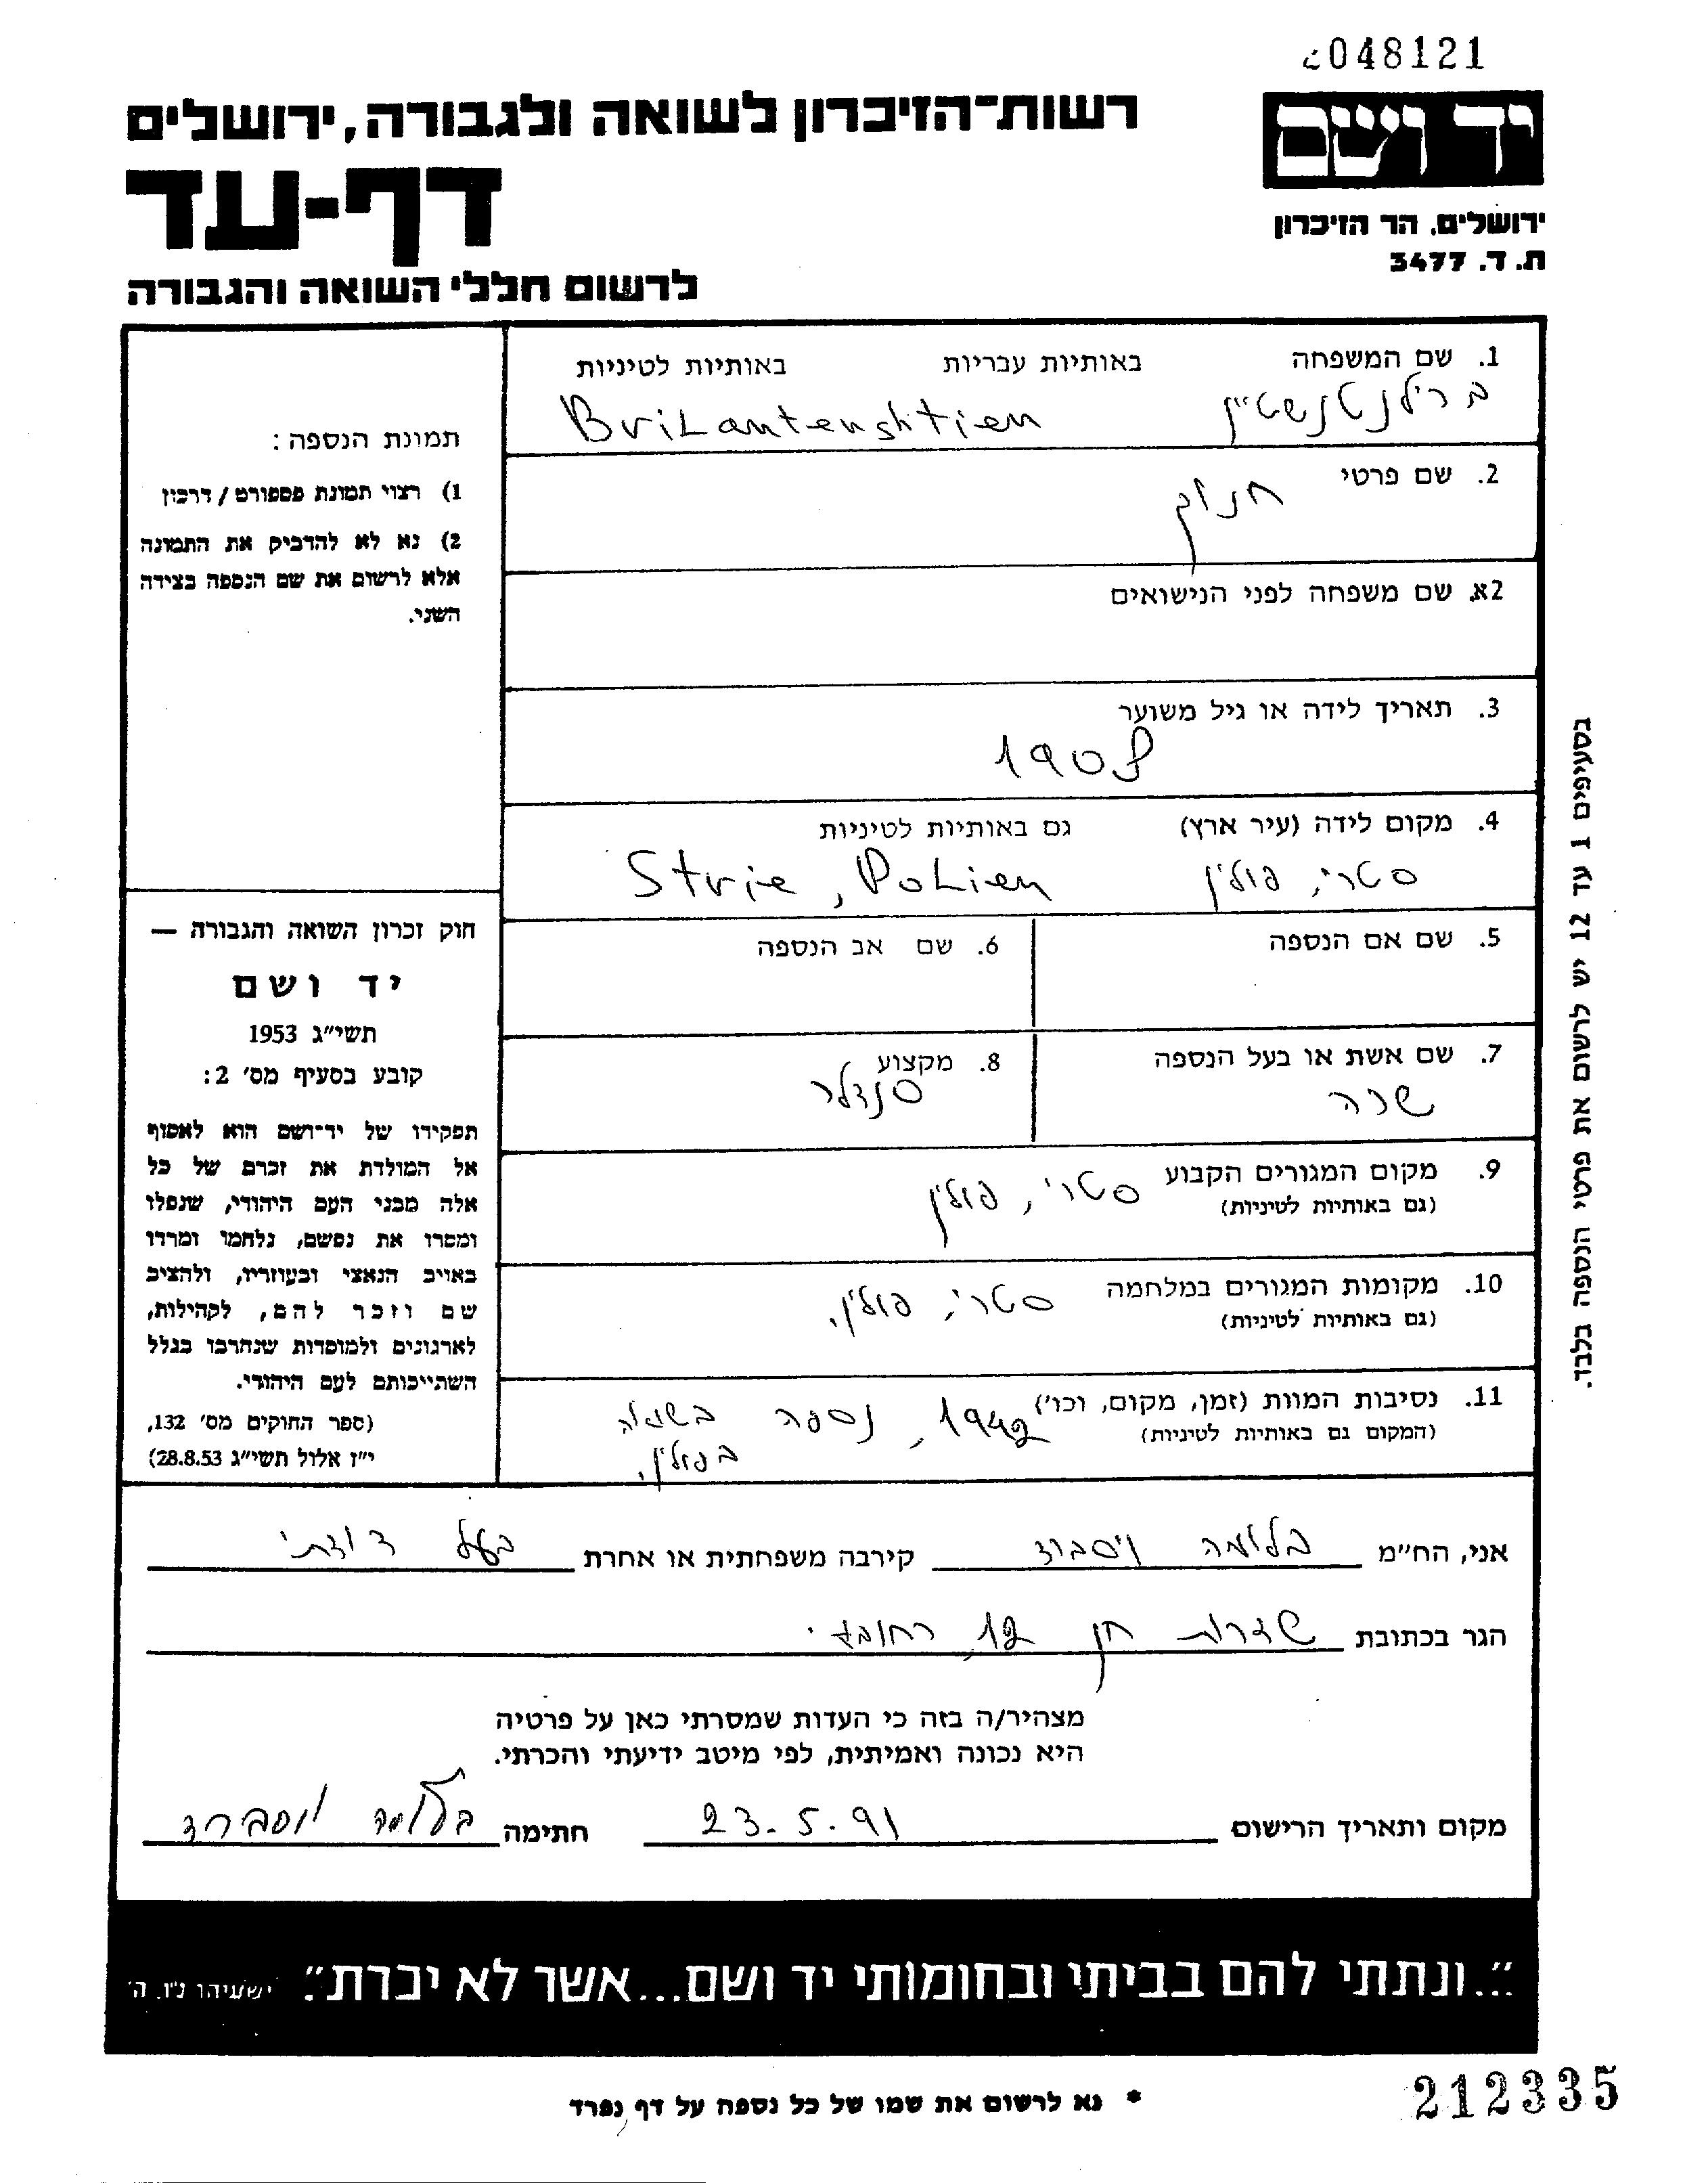 048121
רשות־הזיכרון לשואה ולגבורה, ירושלים
יד ושם
דף-עד
ירושלים. הר הזיכרון
ת. ד. 3477
לרשום חללי השואה והגבורה
1. שם המשפחה באותיות עבריות באותיות לטיניות
ברילנטנשטיין Brilantenshtien
2. שם פרטי
חנוך
2א. שם משפחה לפני הנישואים
3. תאריך לידה או גיל משוער
1908
4. מקום לידה (עיר ארץ) גם באותיות לטיניות
סטרי, פולין Strie, Polien
5. שם אם הנספה
6. שם אב הנספה
7. שם אשת או בעל הנספה
שרה
8. מקצוע
סנדלר
9. מקום המגורים הקבוע סטרי, פולין
(גם באותיות לטיניות)
10. מקומות המגורים במלחמה סטרי, פולין.
(גם באותיות לטיניות)
11. נסיבות המוות (זמן, מקום, וכו') 1942, נספה בשואה
(המקום גם באותיות לטיניות) בפולין.
תמונת הנספה:
1) רצוי תמונת פספורט / דרכון
2) נא לא להדביק את התמונה
אלא לרשום את שם הנספה בצידה
השני.
חוק זכרון השואה והגבורה —
יד ושם
תשי״ג 1953
קובע בסעיף מס׳ 2:
תפקידו של יד־ושם הוא לאסוף
אל המולדת את זכרם של כל
אלה מבני העם היהודי, שנפלו
ומסרו את נפשם, נלחמו ומרדו
באויב הנאצי ובעוזריו, ולהציב
שם וזכר להם, לקהילות,
לארגונים ולמוסדות שנחרבו בגלל
השתייכותם לעם היהודי.
(ספר החוקים מס׳ 132,
י״ז אלול תשי״ג 28.8.53)
בסעיפים 1 עד 12 יש לרשום את פרטי הנספה בלבד.
אני, הח״מ בלומה ויסברד קירבה משפחתית או אחרת בעל דודתי
הגר בכתובת שדרות חן 12, רחובות.
מצהיר/ה בזה כי העדות שמסרתי כאן על פרטיה
היא נכונה ואמיתית, לפי מיטב ידיעתי והכרתי.
מקום ותאריך הרישום 23.5.91 חתימה בלומה ויסברד
״...ונתתי להם בביתי ובחומותי יד ושם...אשר לא יכרת״. ישעיהו נ״ו. ה׳
* נא לרשום את שמו של כל נספה על דף נפרד
212335